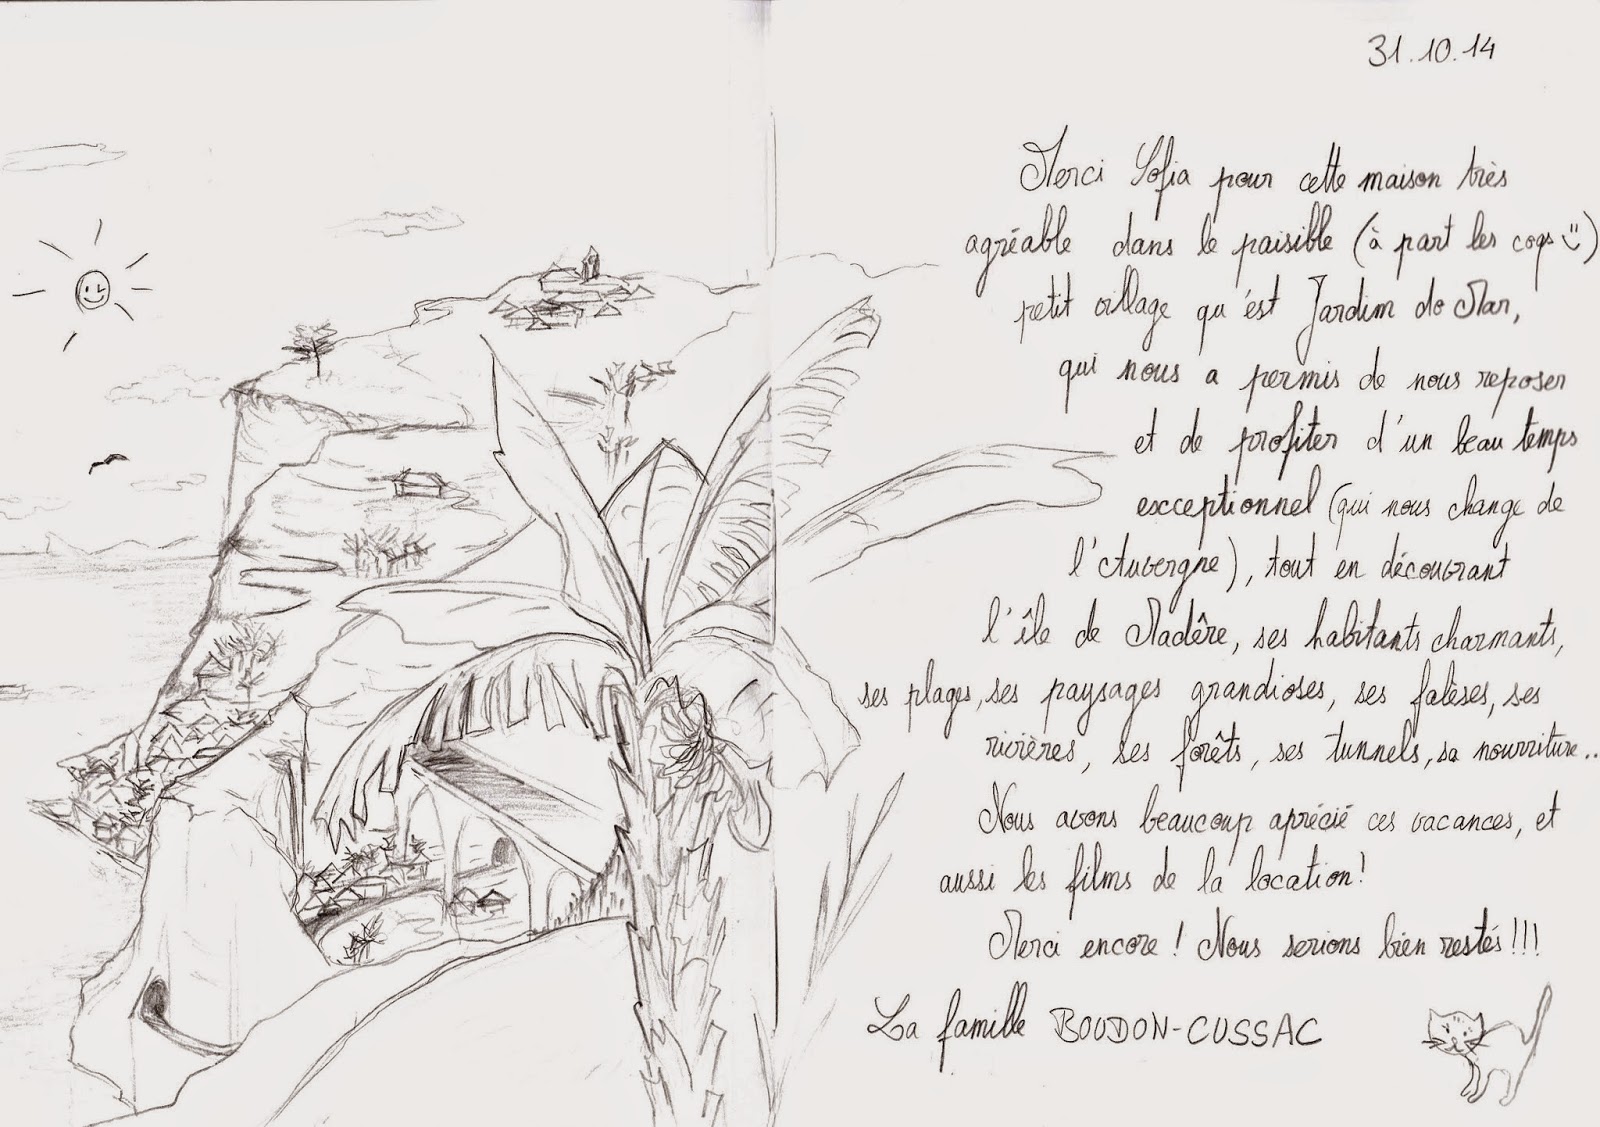 31.10.14
Merci Sofia pour cette maison très
agréable dans le paisible (à part les coqs)
petit village qu'est Jardim do Mar,
qui nous a permis de nous reposer
et de profiter d'un beau temps
exceptionnel (qui nous change de
l'Auvergne), tout en découvrant
l'île de Madêre, ses habitants charmants,
ses plages, ses paysages grandioses, ses falèses, ses
rivières, ses forêts, ses tunnels, sa nourriture..
Nous avons beaucoup aprécié ces vacances, et
aussi les films de la location!
Merci encore! Nous serions bien restés!!!
La famille BOUDON-CUSSAC